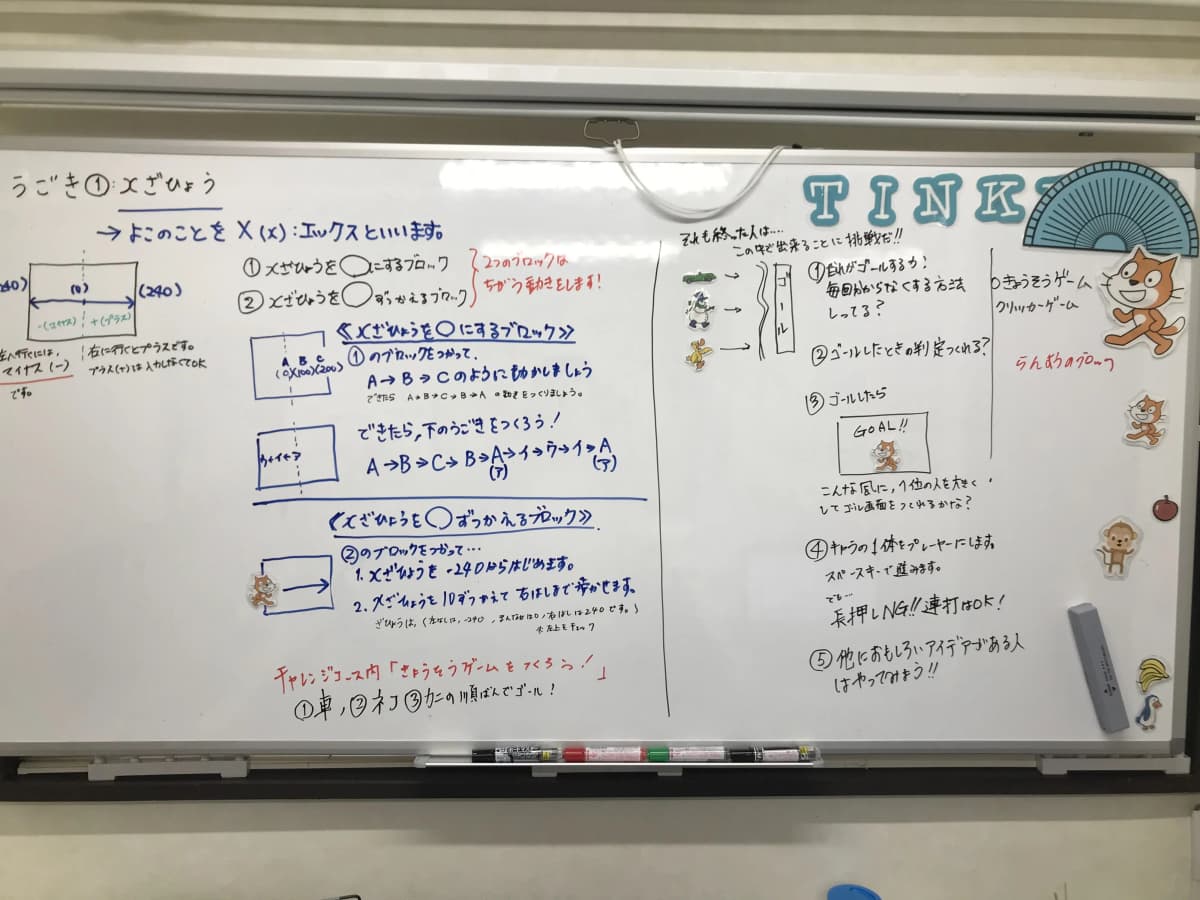 うごき①:xざひょう
→よこのことを X(x):エックスといいます。
(0)
(240)
-(マイナス)
+(プラス)
左へ行くには、
マイナス(-)
です。
右に行くとプラスです。
プラス(+)は入力しなくてOK
①xざひょうを◯にするブロック
②xざひょうを◯ずつかえるブロック
2つのブロックは
ちがう動きをします!
《xざひょうを◯にするブロック》
①のブロックをつかって、
A→B→Cのように動かしましょう
できたら A→B→C→B→A の動きをつくりましょう。
A B C
(0)(100)(200)
できたら、下のうごきをつくろう!
A→B→C→B→A→イ→ウ→イ→A
(ア) (ア)
ウ←イ←ア
《xざひょうを◯ずつかえるブロック》
②のブロックをつかって…
1. xざひょうを-240からはじめます。
2. xざひょうを10ずつかえて右はしまで歩かせます。
ざひょうは、(左はしは、-240、まんなかは0、右はしは240です。)
※左上をチェック
チャレンジコース内「きょうそうゲームをつくろう!」
①車、②ネコ③カニの順ばんでゴール!
TINK
それも終った人は…
この中で出来ることに挑戦だ!!
ゴール
①だれがゴールするか?
毎回分からなくする方法
しってる?
②ゴールしたときの判定つくれる?
③ゴールしたら
GOAL!!
こんな風に、1位の人を大きく
してゴール画面をつくれるかな?
④キャラの1体をプレーヤーにします。
スペースキーで進みます。
でも…
長押しNG!!連打はOK!
⑤他におもしろいアイデアがある人
はやってみよう!!
○きょうそうゲーム
クリッカーゲーム
らんすうのブロック